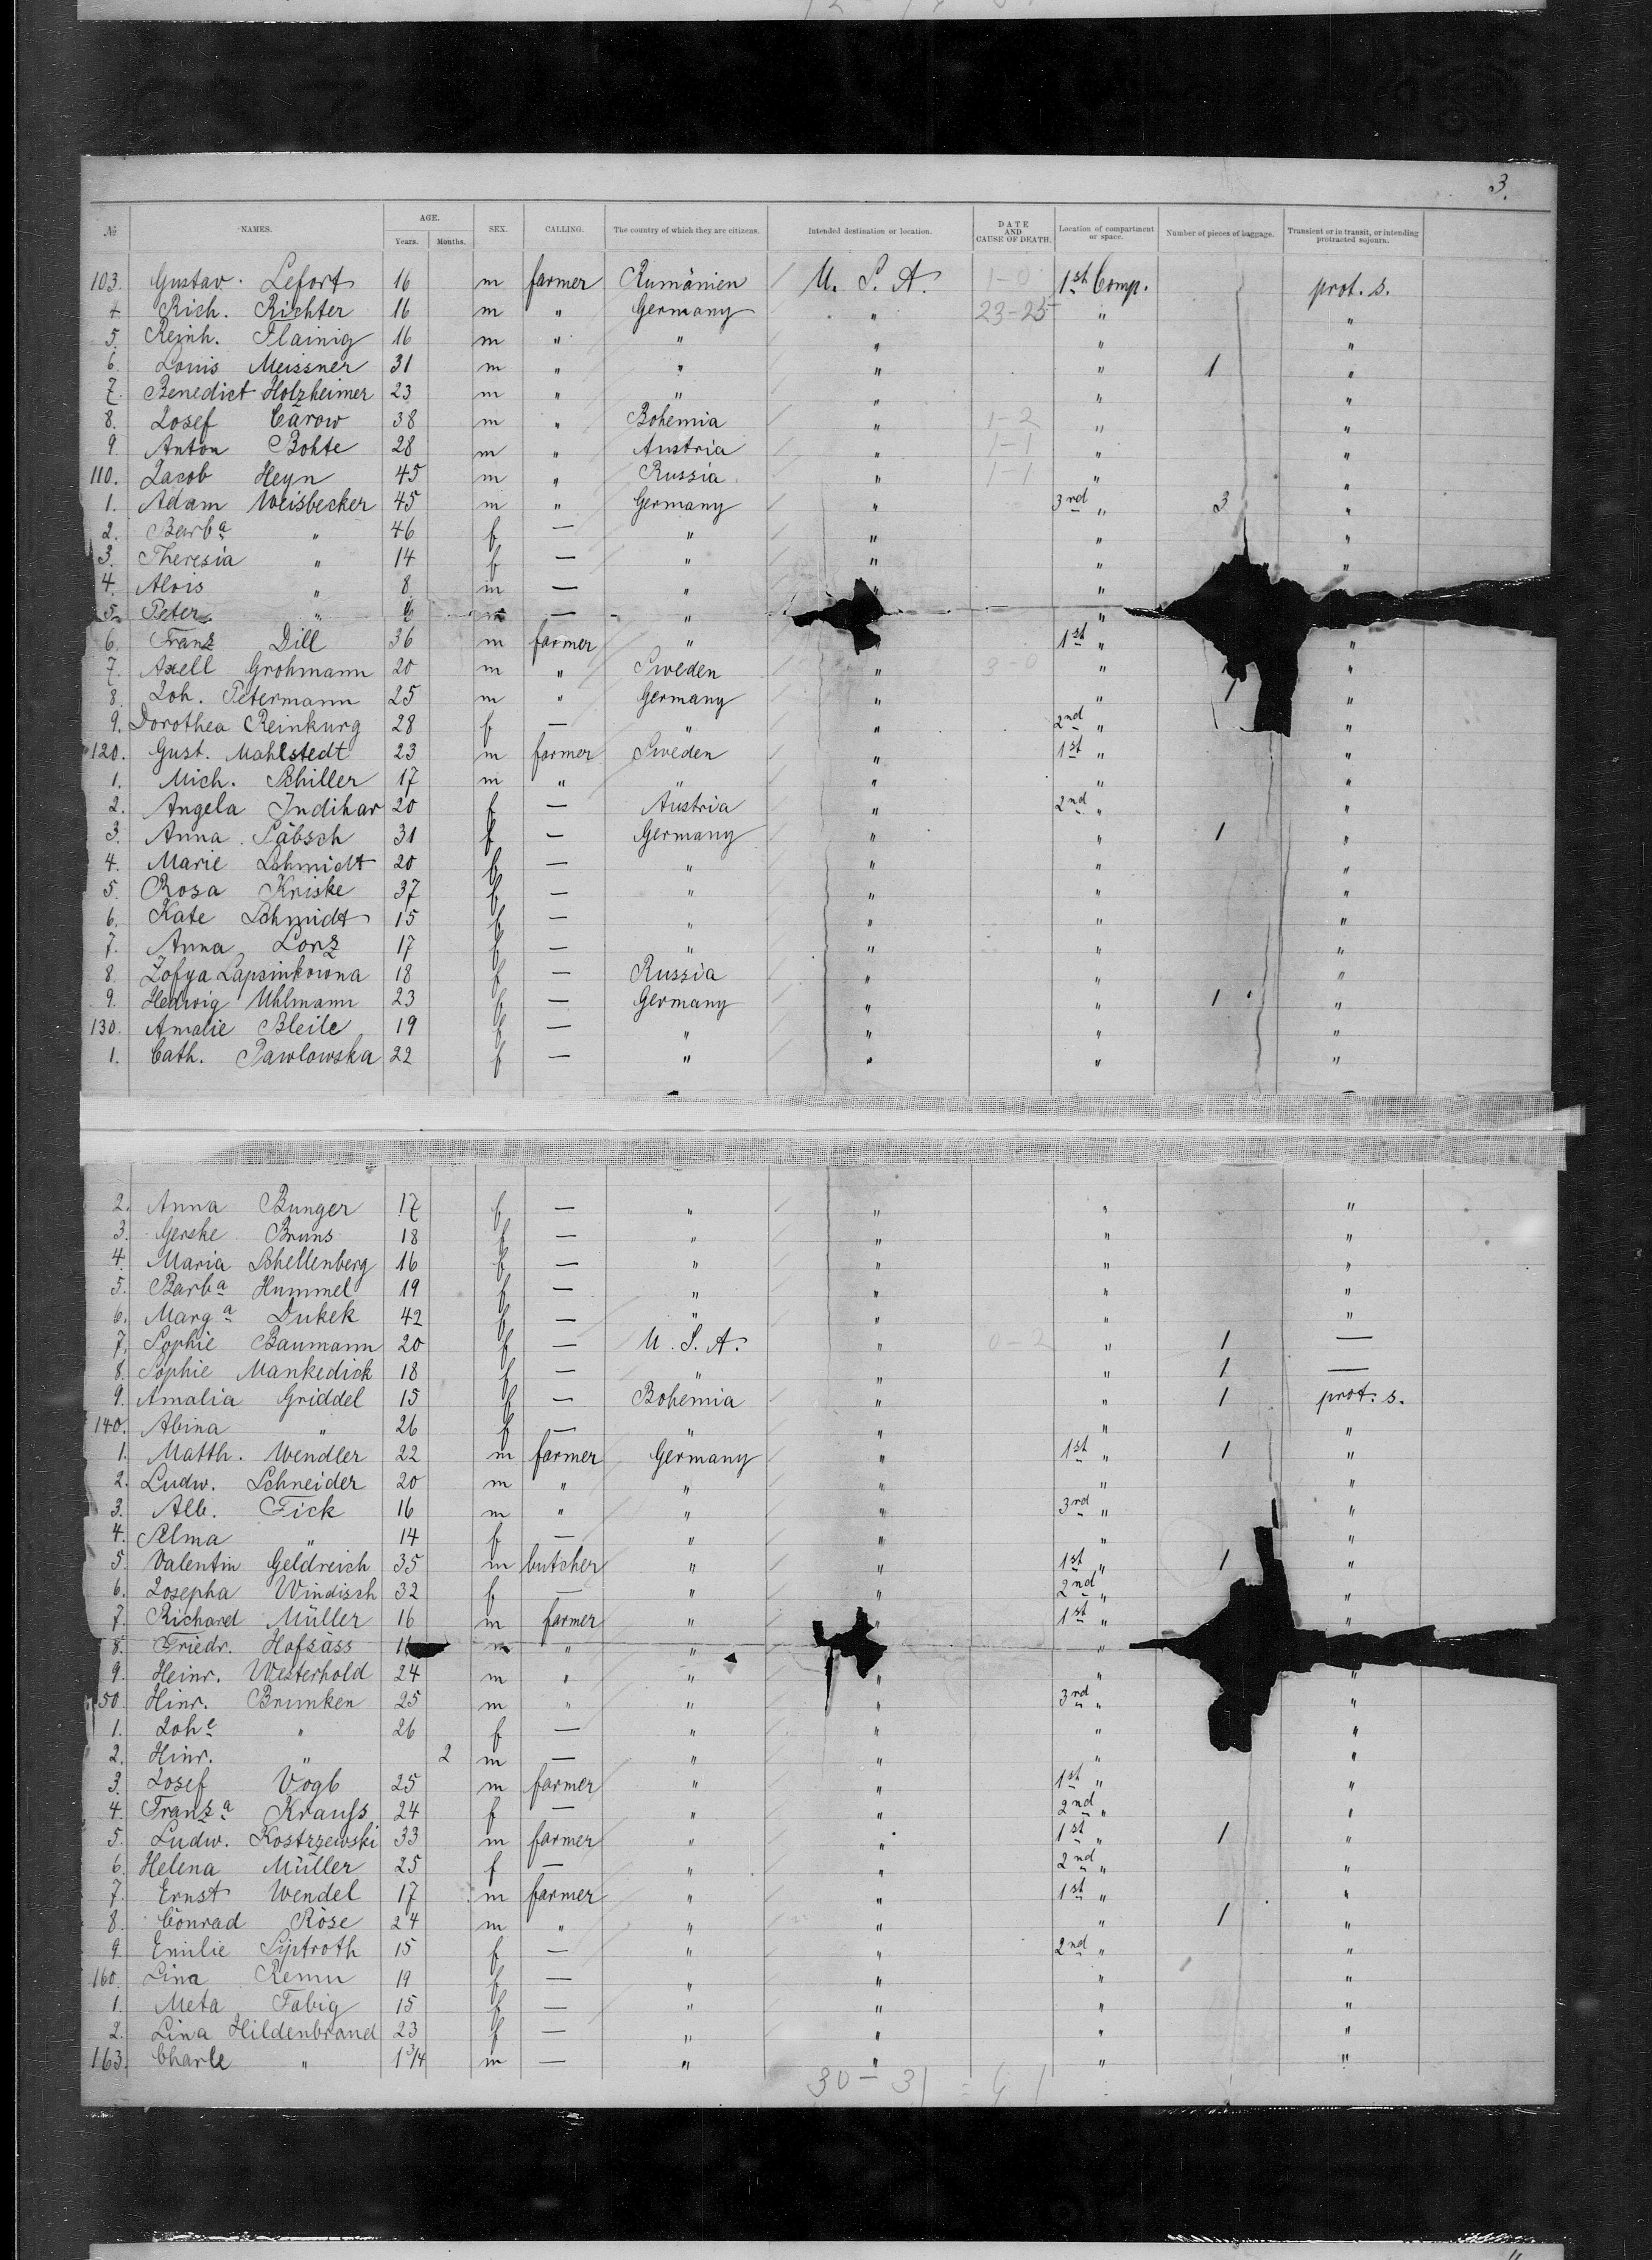 3.
№ NAMES. AGE. Years. Months. SEX. CALLING. The country of which they are citizens. Intended destination or location. DATE AND CAUSE OF DEATH. Location of compartment or space. Number of pieces of baggage. Transient or in transit, or intending protracted sojourn.
103. Gustav Lefort 16 m farmer Rumänien U. S. A. 1-0 1st Comp. prot. s.
4. Rich. Richter 16 m " Germany " 23-25 " "
5. Reinh. Flainig 16 m " " " " "
6. Louis Meissner 31 m " " " " 1 "
7. Benedict Holzheimer 23 m " " " " "
8. Josef Carow 38 m " Bohemia " 1-2 " "
9. Anton Bohte 28 m " Austria " 1-1 " "
110. Jacob Heyn 45 m " Russia " 1-1 " "
1. Adam Weisbecker 45 m " Germany " 3rd " 3 "
2. Barba " 46 f — " " " "
3. Theresia " 14 f — " " " "
4. Alois " 8 m — " " "
5. Peter " m — " "
6. Franz Dill 36 m farmer " " 1st " "
7. Axell Grohmann 20 m " Sweden " 3-0 " "
8. Joh. Petermann 25 m " Germany " " 1 "
9. Dorothea Reinkurg 28 f — " " 2nd " "
120. Gust. Mahlstedt 23 m farmer Sweden " 1st " "
1. Mich. Schiller 17 m " " " " "
2. Angela Indihar 20 f — Austria " 2nd " "
3. Anna Päbsch 31 f — Germany " " 1 "
4. Marie Schmidt 20 f — " " " "
5. Rosa Kniske 37 f — " " " "
6. Kate Schmidt 15 f — " " " "
7. Anna Lorz 17 f — " " " "
8. Zofya Lapsinkowna 18 f — Russia " " "
9. Hedwig Uhlmann 23 f — Germany " " 1 "
130. Amalie Bleile 19 f — " " " "
1. Cath. Pawlowska 22 f — " " " "
2. Anna Bunger 17 f — " " " "
3. Gerske Bruns 18 f — " " " "
4. Maria Schellenberg 16 f — " " " "
5. Barba Hummel 19 f — " " " "
6. Marga Dukek 42 f — " " " "
7. Sophie Baumann 20 f — U. S. A. " 0-2 " 1 —
8. Sophie Mankedick 18 f — " " " 1 —
9. Amalia Griddel 15 f — Bohemia " " 1 prot. s.
140. Abina " 26 f — " " " "
1. Matth. Wendler 22 m farmer Germany " 1st " 1 "
2. Ludw. Schneider 20 m " " " " "
3. Alb. Fick 16 m " " " 3rd " "
4. Selma " 14 f — " " " "
5. Valentin Geldreich 35 m butcher " " 1st " 1 "
6. Josepha Windisch 32 f — " " 2nd " "
7. Richard Müller 16 m farmer " " 1st " "
8. Friedr. Hofsäss m " " "
9. Heinr. Westerhold 24 m " " " " "
50. Hinr. Brunken 25 m " " " 3rd " "
1. Johe " 26 f — " " " "
2. Hinr. " 2 m — " " " "
3. Josef Vogl 25 m farmer " " 1st " "
4. Franza Krauss 24 f — " " 2nd " "
5. Ludw. Kostrzewski 33 m farmer " " 1st " 1 "
6. Helena Müller 25 f — " " 2nd " "
7. Ernst Wendel 17 m farmer " " 1st " "
8. Conrad Röse 24 m " " " " 1 "
9. Emilie Siptroth 15 f — " " 2nd " "
160. Lina Remu 19 f — " " " "
1. Meta Fabig 15 f — " " " "
2. Lina Hildenbrand 23 f — " " " "
163. Charle " 1 3/4 m — " " " "
30 - 31 =